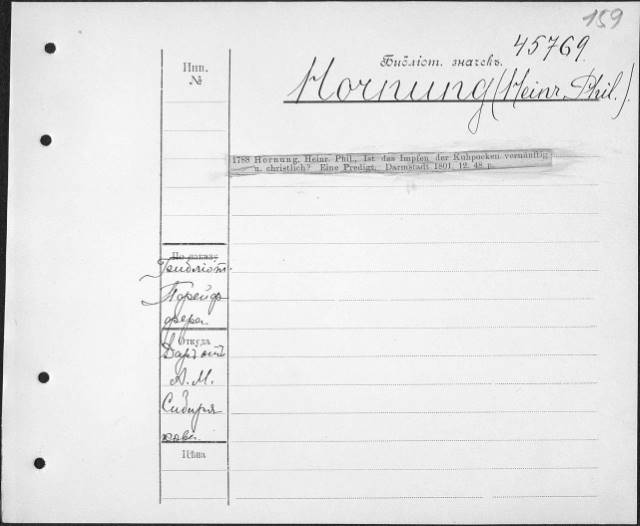 159
45769
Библіот. значекъ.
Инв.
№
Hornung (Heinr. Phil.).
1788 Hornung, Heinr. Phil., Ist das Impfen der Kuhpocken vernünftig
u. christlich? Eine Predigt. Darmstadt 1801. 12. 48 p.
По заказу
Библіот.
Откуда
Даръ отъ
А. М.
Сибиря
кова
Цѣна